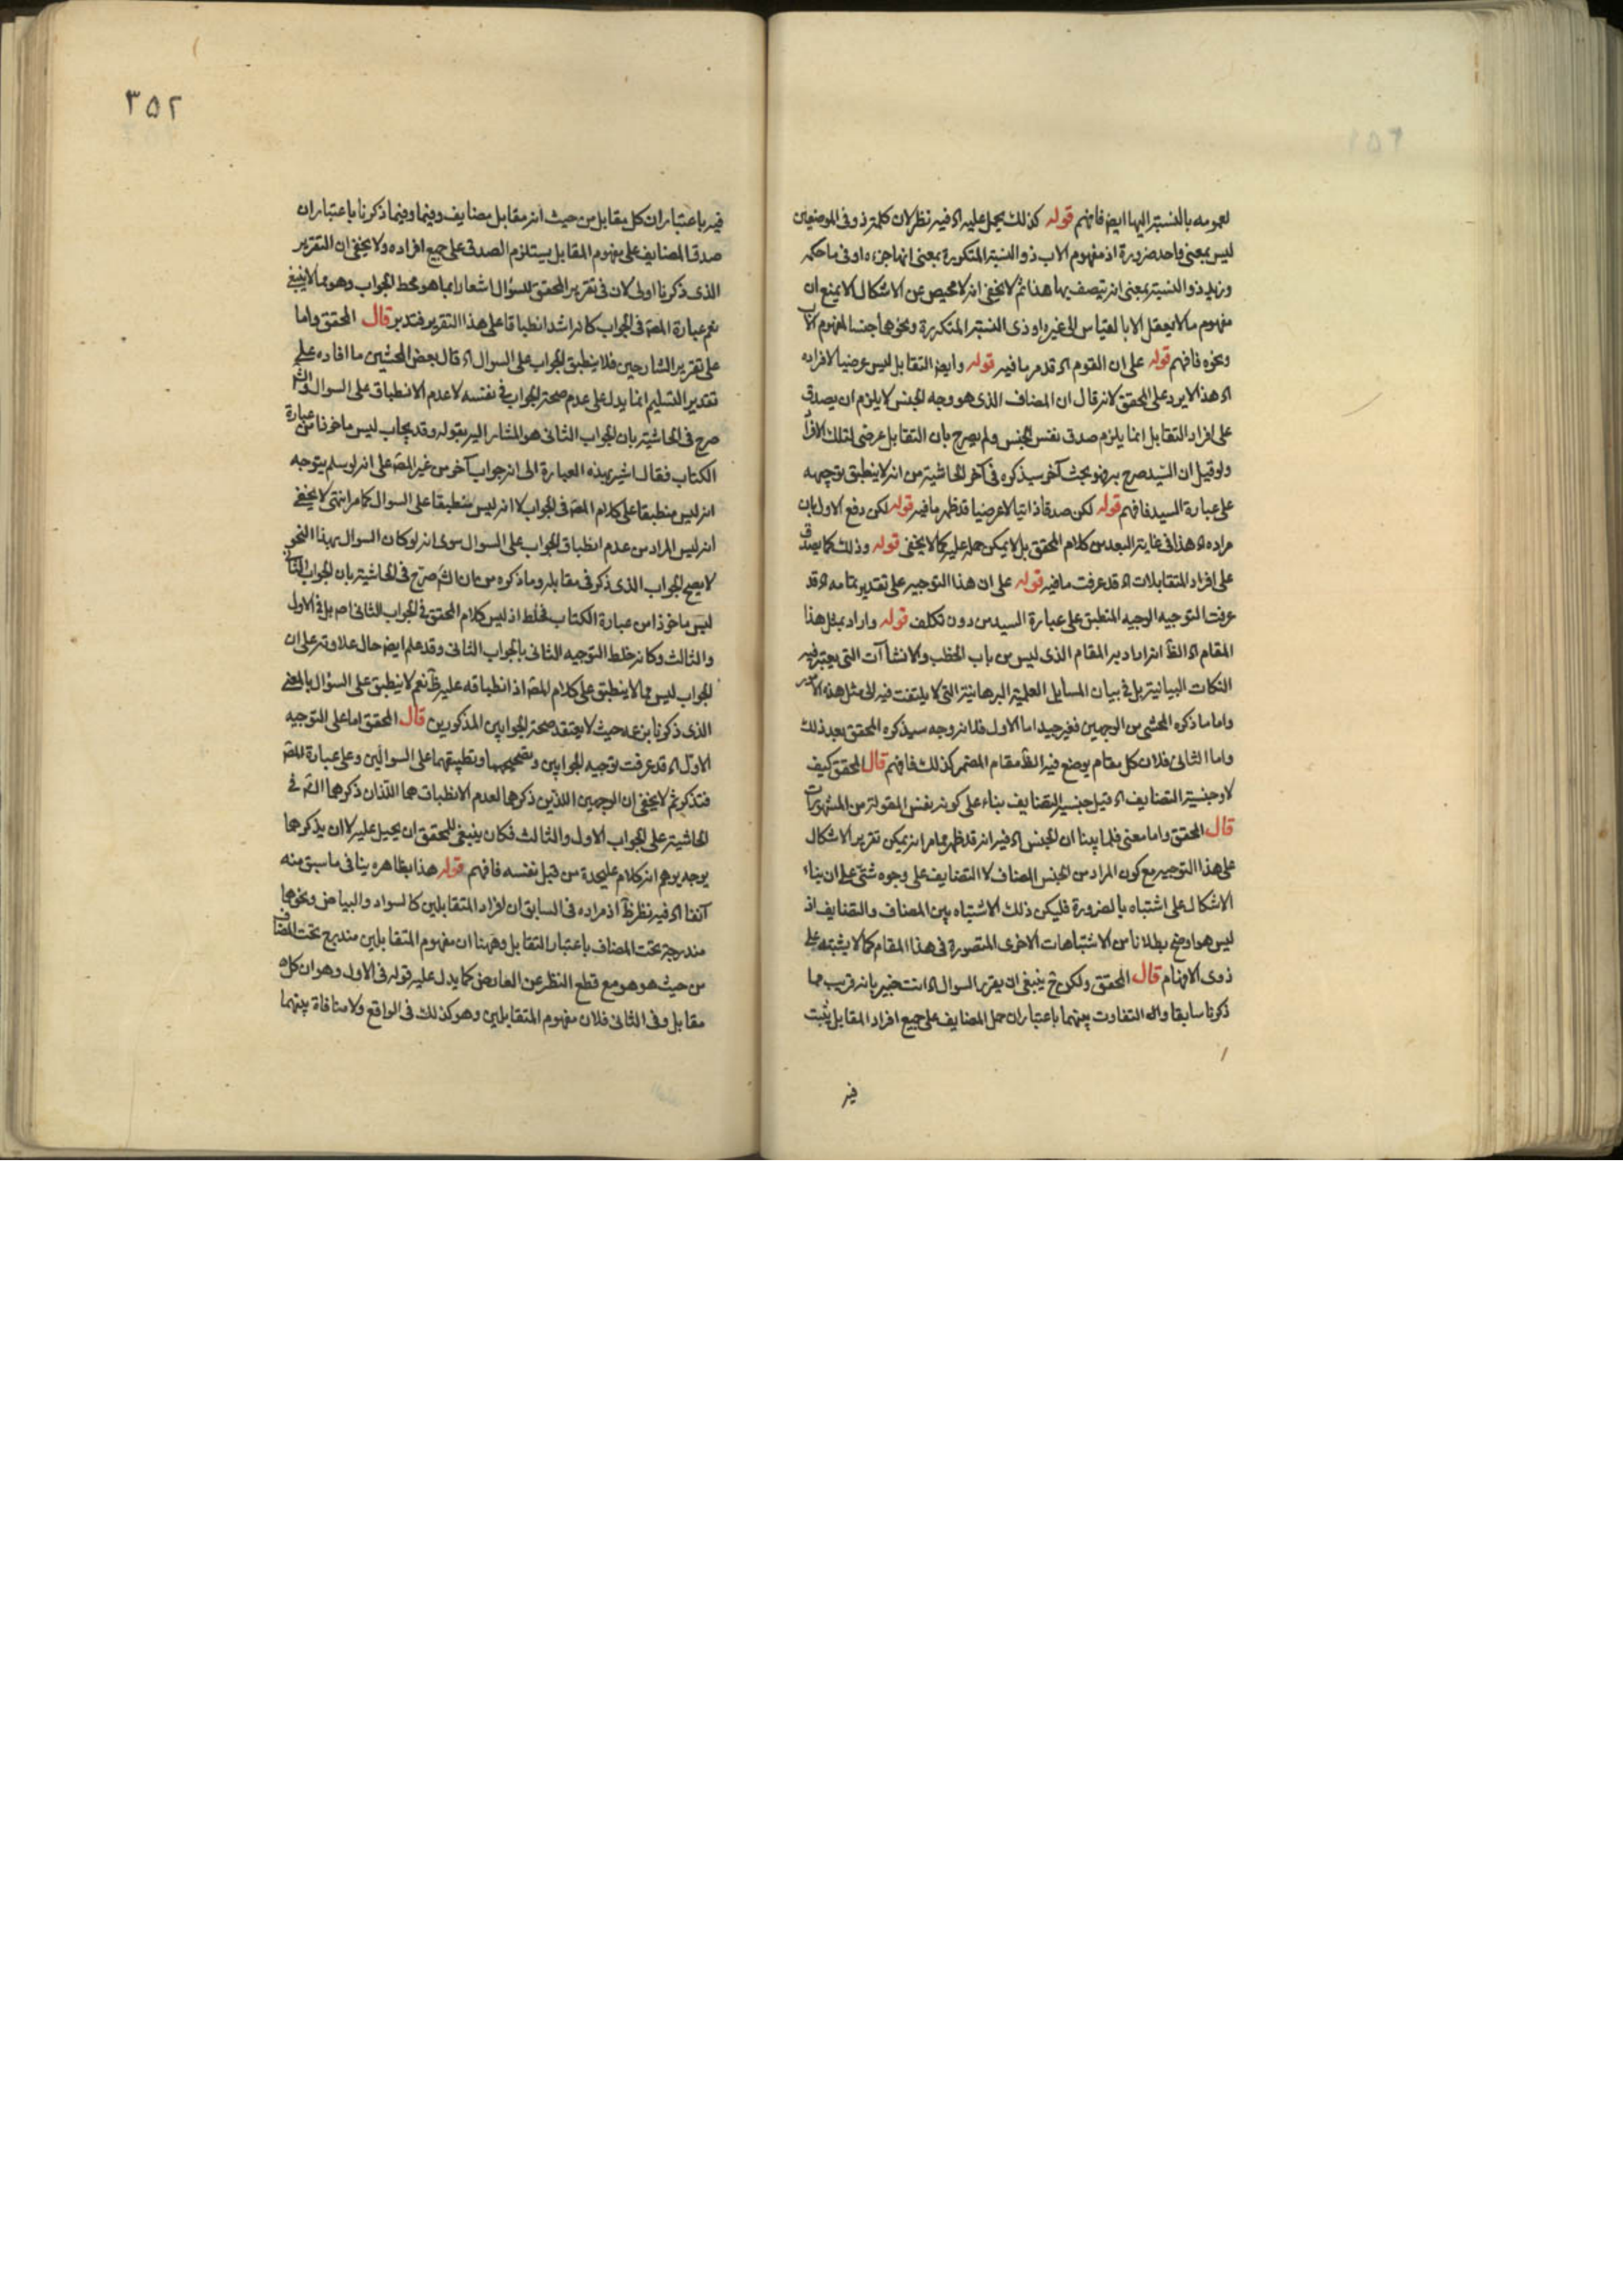 لعمومه بالنسبة اليها ايضا فافهم قوله كذلك يحمل عليه اه فيه نظر لان كلمة ذو في الموضعين
ليس بمعنى واحد ضرورة اذ مفهوم الاب ذو النسبة المتكررة بمعنى انها جزءه او في ما حكمه
وزيد ذو النسبة بمعنى انه يتصف بها هذا ثم لا يخفى انه لا محيص عن الاشكال الا بمنع ان
مفهوم ما لا يعقل الا بالقياس الى غيره او ذي النسبة المتكررة ونحوها جنسا لمفهوم الاب
ونحوه فافهم قوله على ان القوم اه قد مر ما فيه قوله وايضا التقابل ليس عرضيا لافراده
اه هذا لا يرد على المحقق لانه قال ان المضاف الذي هو وجه الجنس لا يلزم ان يصدق
على افراد التقابل انما يلزم صدق نفس الجنس ولم يصرح بان التقابل عرضي لتلك الافراد
ولو قيل ان السيد صرح به فهو بحث آخر سيذكره في آخر الحاشية من انه لا ينطبق توجيهه
على عبارة السيد فافهم قوله لكن صدقا ذاتيا لا عرضيا قد ظهر ما فيه قوله لكن دفع الاول بان
مراده اه هذا في غاية البعد من كلام المحقق بل لا يمكن حمله عليه كما لا يخفى قوله وذلك كما يصدق
على افراد المتقابلات اه قد عرفت ما فيه قوله على ان هذا التوجيه على تقدير تمامه اه قد
عرفت التوجيه الوجيه المنطبق على عبارة السيد من دون تكلف قوله واراد بمثل هذا
المقام اه الظ انه اراد به المقام الذي ليس من باب الخطب والانشاآت التي يعتبر فيه
النكات البيانية بل في بيان المسايل العلمية البرهانية التي لا يلتفت فيه الى مثل هذه الامور
واما ما ذكره المحشي من الوجهين فغير جيد اما الاول فلانه وجه سيذكره المحقق بعد ذلك
واما الثاني فلان كل مقام يوضع فيه الظ مقام المضمر كذلك فافهم قال المحقق كيف
لا وجنسية التضايف اه قيل جنسية التضايف بناء على كونه نفس المقولة من المشهورات
قال المحقق واما معنى فلما بينا ان الجنس اه فيه انه قد ظهر مما مر انه يمكن تقرير الاشكال
على هذا التوجيه مع كون المراد من الجنس المضاف لا التضايف على وجوه شتى على ان بناء
الاشكال على اشتباه بالضرورة فليكن ذلك الاشتباه بين المضاف والتضايف اذ
ليس هو اوضح بطلانا من الاشتباهات الاخرى المتصورة في هذا المقام كما لا يشتبه على
ذوي الافهام قال المحقق ولكن ح ينبغي ان يقرر السوال اه انت خبير بانه قريب مما
ذكرنا سابقا واله التفاوت بينهما باعتبار ان حمل المضايف على جميع افراد المقابل يثبت
فيه
٣٥٢
فيه باعتبار ان كل مقابل من حيث انه مقابل مضايف وفيما ذكرنا باعتبار ان
صدق المضايف على مفهوم المقابل يستلزم الصدق على جميع افراده ولا يخفى ان التقرير
الذي ذكرنا اولى لان في تقرير المحقق للسؤال اشعارا بما هو محط الجواب وهو مما لا ينبغي
نعم عبارة المص في الجواب كانه اشد انطباقا على هذا التقرير فتدبر قال المحقق واما
على تقرير الشارحين فلا ينطبق الجواب على السوال اه قال بعض المحشين ما افاده على
تقدير التسليم انما يدل على عدم صحة الجواب في نفسه لا عدم الانطباق على السوال والش
صرح في الحاشية بان الجواب الثاني هو المشار اليه بقوله وقد يجاب ليس ماخوذا من عبارة
الكتاب فقال اشير بهذه العبارة الى انه جواب آخر من غير المص على انه لو سلم يتوجه
انه ليس منطبقا على كلام المص في الجواب لا انه ليس منطبقا على السوال كما مر انتهى لا يخفى
انه ليس المراد من عدم انطباق الجواب على السوال سوى انه لو كان السوال بهذا النحو
لا يصح الجواب الذي ذكر في مقابله وما ذكره من ان الش صرح في الحاشية بان الجواب الثاني
ليس ماخوذا من عبارة الكتاب فخلط اذ ليس كلام المحقق في الجواب الثاني اص بل في الاول
والثالث وكانه خلط التوجيه الثاني بالجواب الثاني وقد علم ايضا حال علاوته على ان
الجواب ليس مما لا ينطبق على كلام المص اذ انطباقه عليه ظ نعم لا ينطبق على السؤال بالمعنى
الذي ذكرنا بزعمه حيث لا يعتقد صحة الجوابين المذكورين قال المحقق اما على التوجيه
الاول اه قد عرفت توجيه الجوابين وتصحيحهما وتطبيقهما على السوالين وعلى عبارة المص
فتذكر ثم لا يخفى ان الوجهين اللذين ذكرهما لعدم الانطباق هما اللذان ذكرهما الش في
الحاشية على الجواب الاول والثالث فكان ينبغي للمحقق ان يحيل عليه لا ان يذكرهما
بوجه يوهم انه كلام عليحدة من قبل نفسه فافهم قوله هذا بظاهره ينافي ما سبق منه
آنفا اه فيه نظر ظ اذ مراده في السابق ان افراد المتقابلين كالسواد والبياض ونحوها
مندرجة تحت المضاف باعتبار التقابل وههنا ان مفهوم المتقابلين مندرج تحت المضاف
من حيث هو هو مع قطع النظر عن العارض كما يدل عليه قوله في الاول وهو ان كلا
مقابل وفي الثاني فلان مفهوم المتقابلين وهو كذلك في الواقع ولا منافاة بينهما